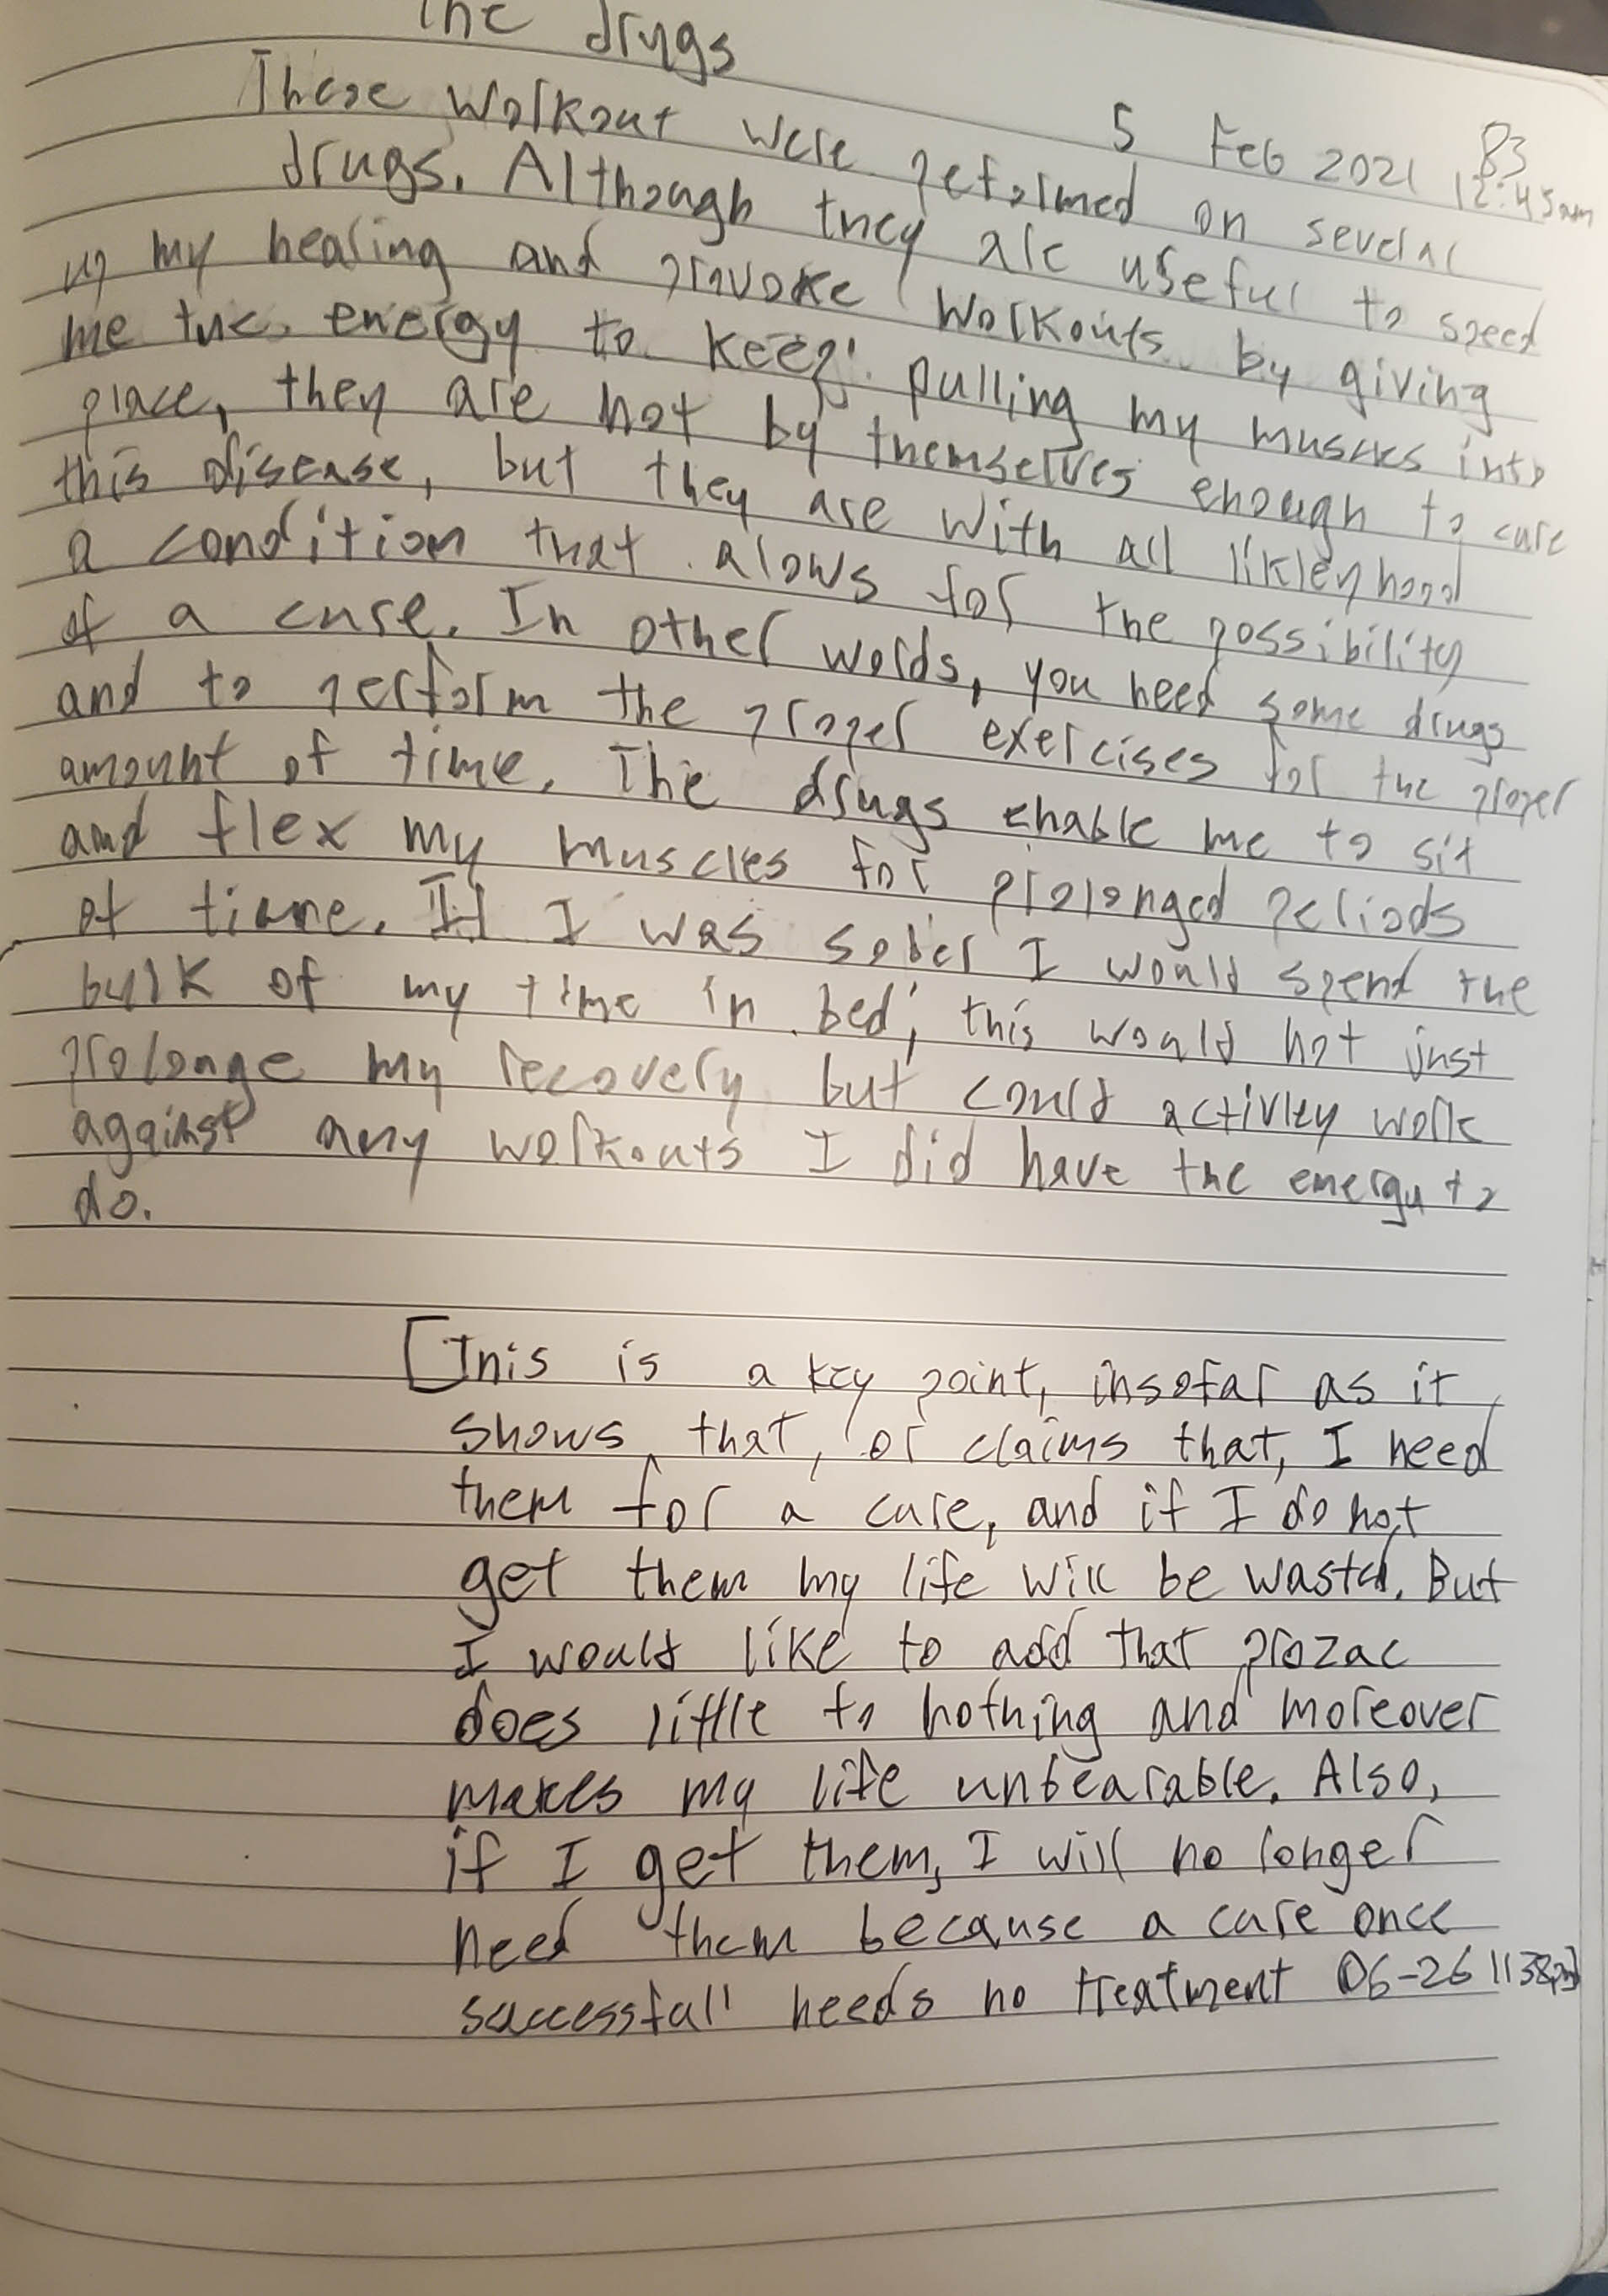 The drugs
5 Feb 2021 83
12:45am
These workout were performed on several
drugs. Although they are useful to speed
up my healing and provoke workouts by giving
me the energy to keep pulling my muscles into
place, they are not by themselves enough to cure
this disease, but they are with all likleyhood
a condition that alows for the possibility
of a cure. In other words, you need some drugs
and to perform the proper exercises for the proper
amount of time. The drugs enable me to sit
and flex my muscles for prolonged periods
of time. If I was sober I would spend the
bulk of my time in bed; this would not just
prolonge my recovery but could activley work
against any workouts I did have the energy to
do.
[This is a key point, insofar as it
shows that, or claims that, I need
them for a cure, and if I do not
get them my life will be wasted. But
I would like to add that prozac
does little to nothing and moreover
makes my life unbearable. Also,
if I get them, I will no longer
need them because a cure once
successfull needs no treatment 06-26 1138pm]